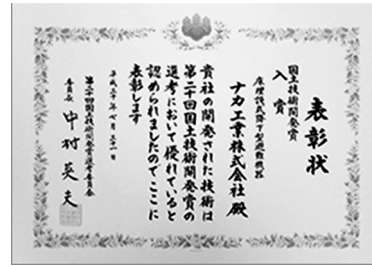 表彰状
国土技術開発賞
入賞
床埋設式降下型避難機器
ナカ工業株式会社 殿
貴社の開発された技術は
第二十回国土技術開発賞の
選考において優れていると
認められましたのでここに
表彰します
平成三十年七月三十一日
第二十回国土技術開発賞選考委員会
委員長 中村英夫